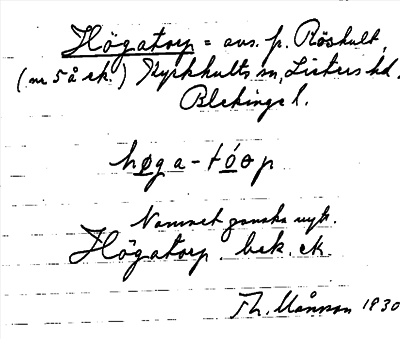 Högatorp = avs. p. Röshult,
(nr 5 å ek.) Kyrkhults sn, Listers hd.
Blekinge l.
høga-tóop
Namnet ganska nytt.
Högatorp bek. ek.
Th. Månsson 1930